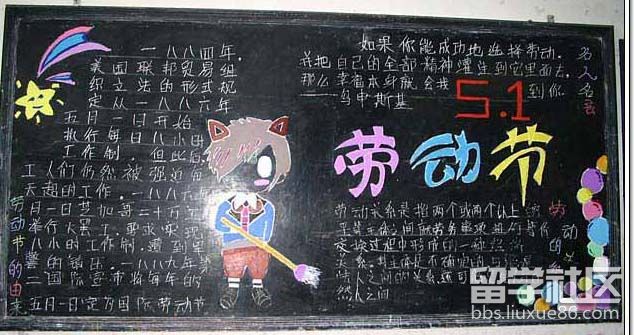 一八八四年,
美国联邦贸易组
织立法的形式规
定从一八八六年
五月一日开始
执行每日八小时
工作制,但此后
工人们仍然被强迫每
天超的工作,一八八六年
月一日芝加哥二十五万
举行大罢工,要求实现
八小时的工作制,遭到军
警的镇压,一八八九年第
二国际宣布将每年的
五月一日定为国际劳动节
劳动节的由来
如果你能成功地选择劳动,
我把自己的全部精神灌注到它里面去,
那么幸福本身就会找到你
——乌申斯基
名人名言
5.1
劳动节
劳动关系是指两个或两个以上
过程中形成的一种经济
关系
人之间的关系,还可
然人之间
劳动的
留学社区
bbs.liuxue86.com